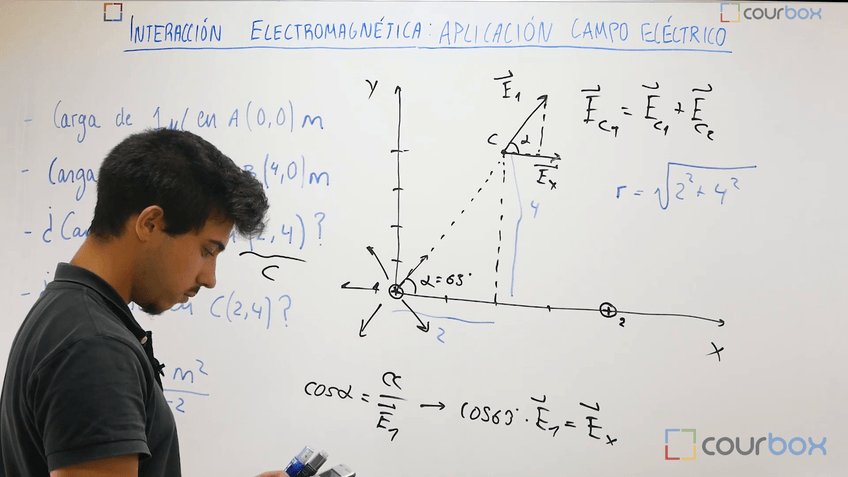 courbox
INTERACCIÓN ELECTROMAGNÉTICA: APLICACIÓN CAMPO ELÉCTRICO
- Carga de 1 μC en A(0,0) m
- Carga B(4,0) m
- ¿ (2,4)?
C
C(2,4)?
m²
-2
Y
E₁
C
α
Eₓ
4
α=63°
2
2
X
E_C₁ = E_C₁ + E_C₂
r = √2²+4²
cosα = cc / E₁ → cos63° · E₁ = Eₓ
courbox